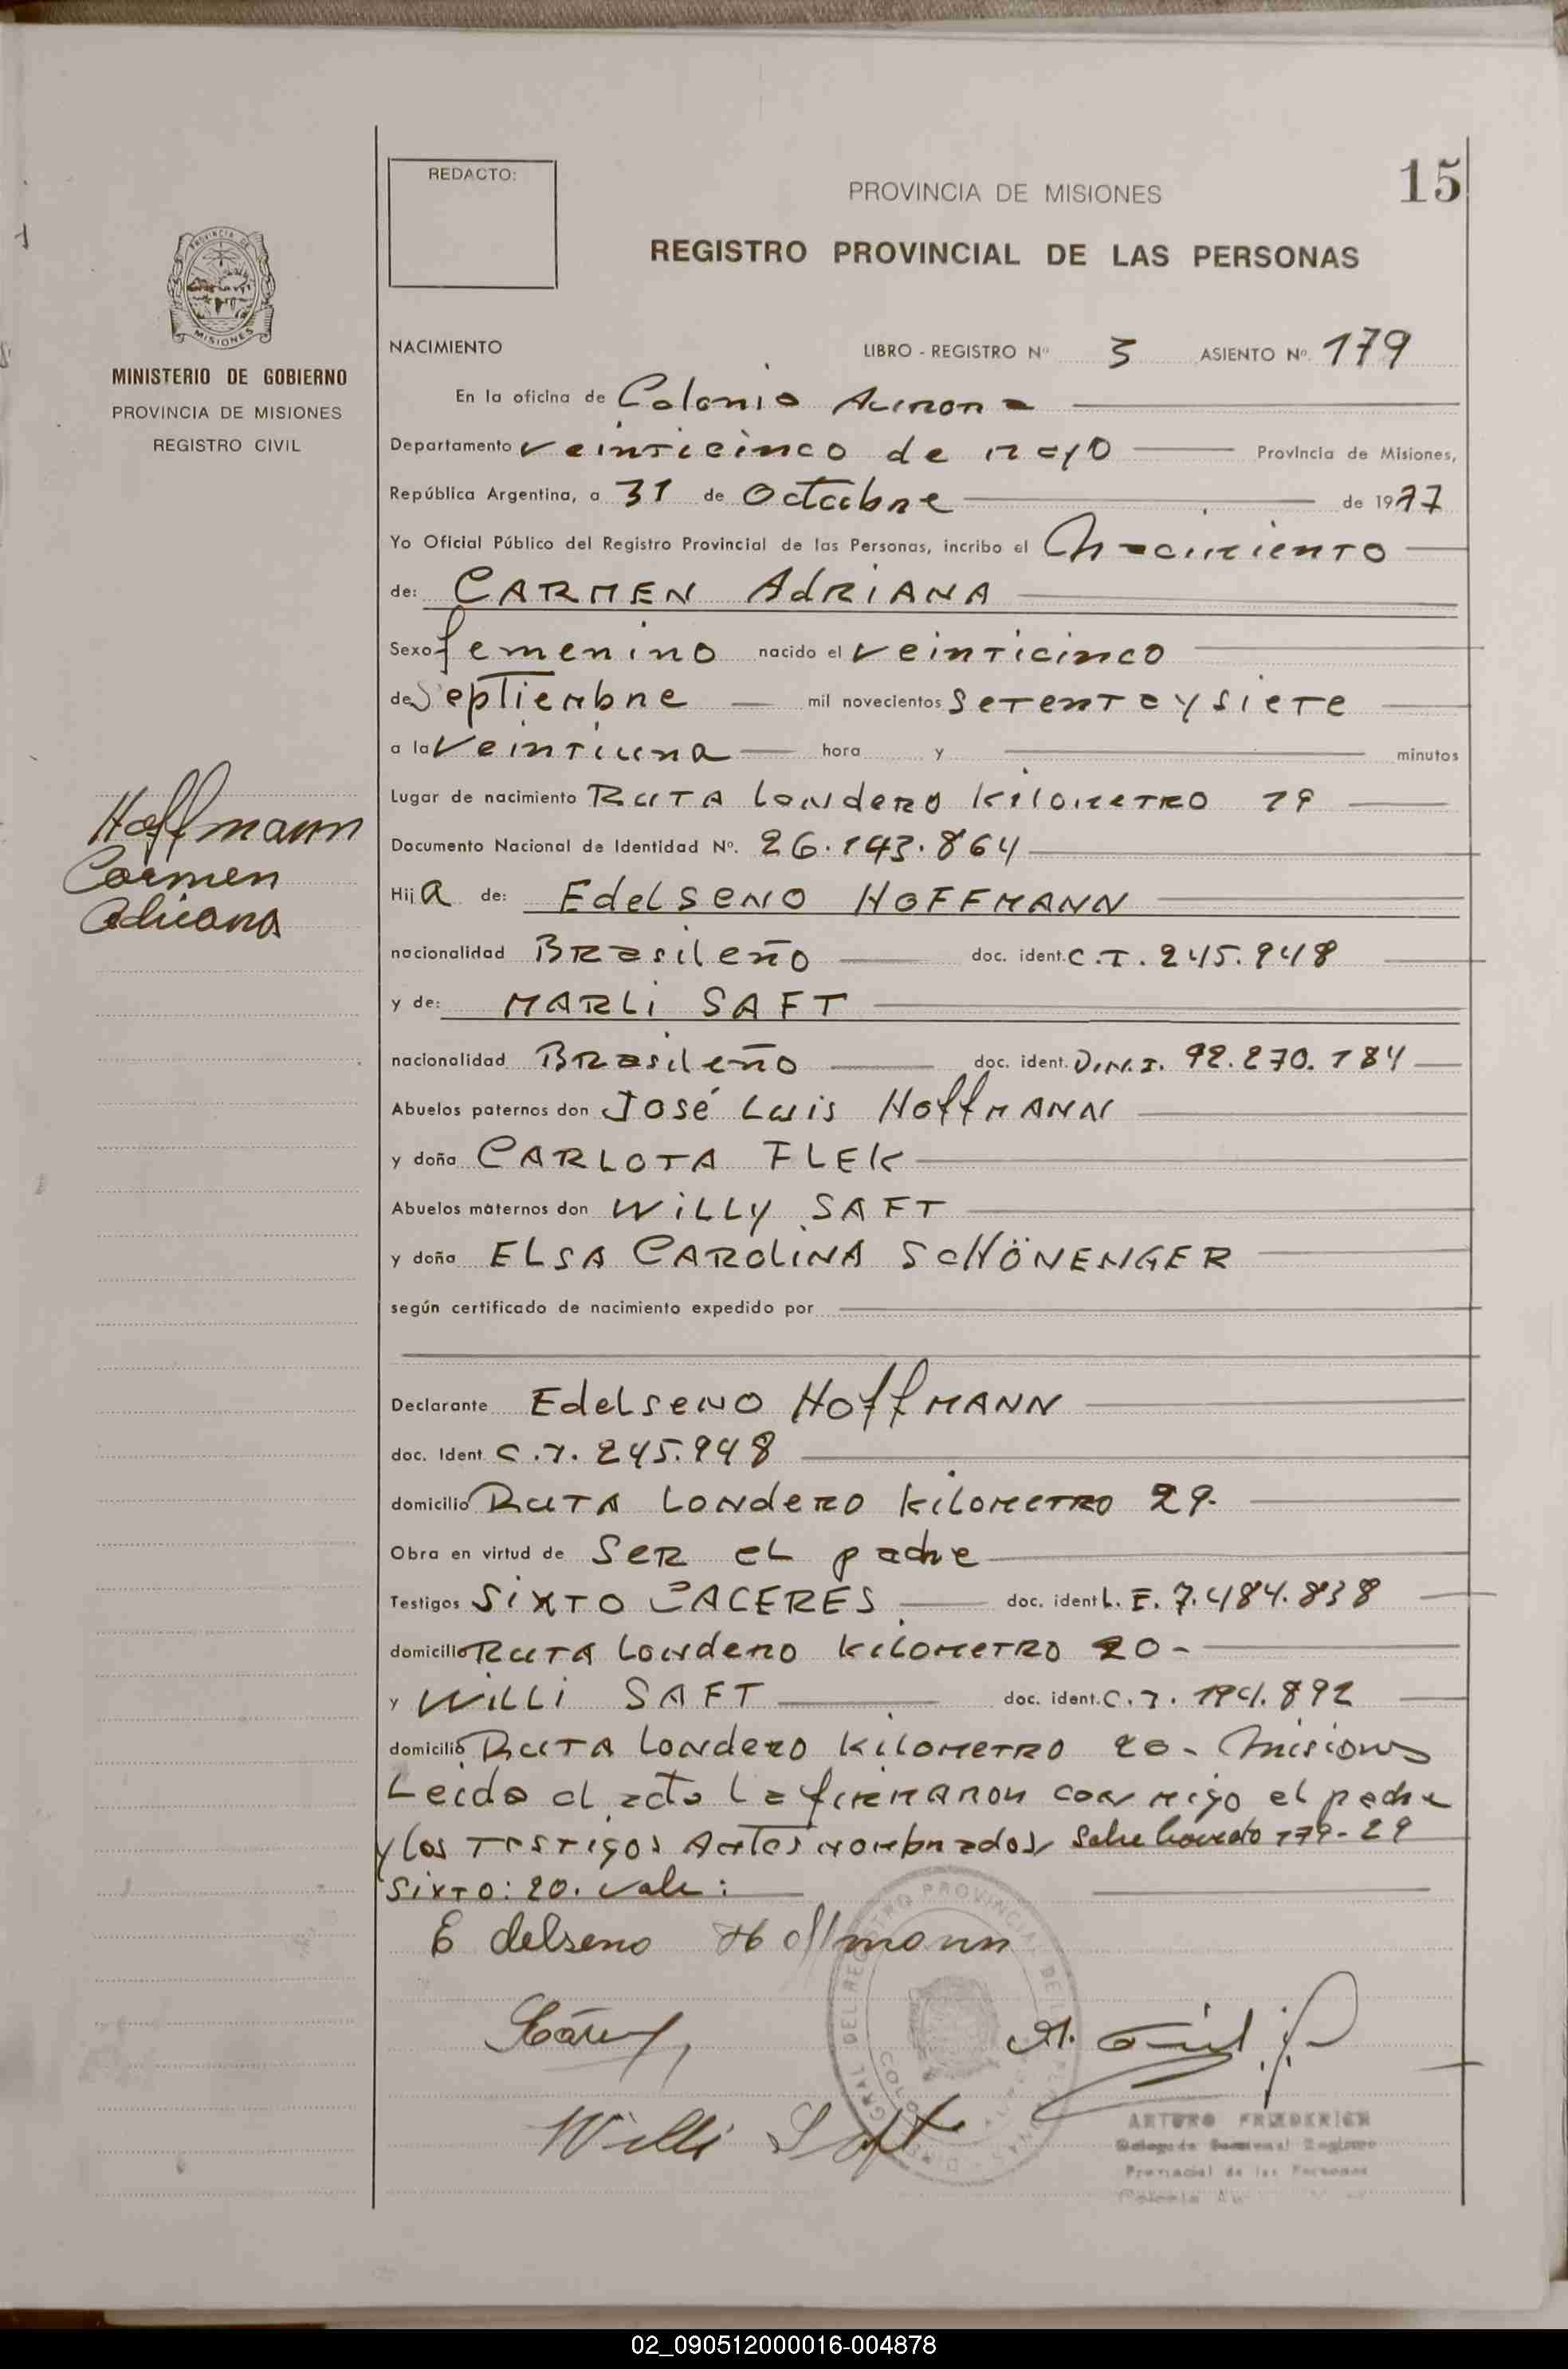 REDACTO:
PROVINCIA DE MISIONES
15
REGISTRO PROVINCIAL DE LAS PERSONAS
PROVINCIA DE MISIONES
MINISTERIO DE GOBIERNO
PROVINCIA DE MISIONES
REGISTRO CIVIL
NACIMIENTO LIBRO - REGISTRO Nº 3 ASIENTO Nº 179
En la oficina de Colonia Aurora
Departamento veinticinco de mayo Provincia de Misiones,
República Argentina, a 31 de Octubre de 1977
Yo Oficial Público del Registro Provincial de las Personas, incribo el Nacimiento
de: CARMEN AdRiANA
Sexo femenino nacido el veinticinco
de Septiembre mil novecientos setenta y siete
a la veintiuna hora y minutos
Lugar de nacimiento RUTA Londero Kilometro 19
Documento Nacional de Identidad Nº. 26.143.864
Hoffmann
Carmen
Adriana
Hija de: EdelSENO HOFFMANN
nacionalidad BRasileño doc. ident. C.I. 245.948
y de: MARLi SAFT
nacionalidad BRasileño doc. ident. D.N.I. 92.270.184
Abuelos paternos don José Luis HoffMANN
y doña CARLOTA FLEK
Abuelos maternos don WiLLy SAFT
y doña ELSA CAROLiNA SCHÖNENGER
según certificado de nacimiento expedido por
Declarante EdelSENO HoffMANN
doc. Ident C.I. 245.948
domicilio RUTA Londero Kilometro 29-
Obra en virtud de SER el padre
Testigos SiXTO CACERES doc. ident L.E. 7.484.838
domicilio RUTA Londero Kilometro 20-
y WiLLi SAFT doc. ident. C.I. 194.892
domicilio RUTA Londero Kilometro 20- Misiones
Leida el acta la firmaron conmigo el padre
y los Testigos Antes nombrados Sobre borrado 179-29
Sixto: 20. Vale:
Edelseno Hoffmann
Willi Saft
ARTURO FRIEDERICH
Provincial de las Personas
02_090512000016-004878